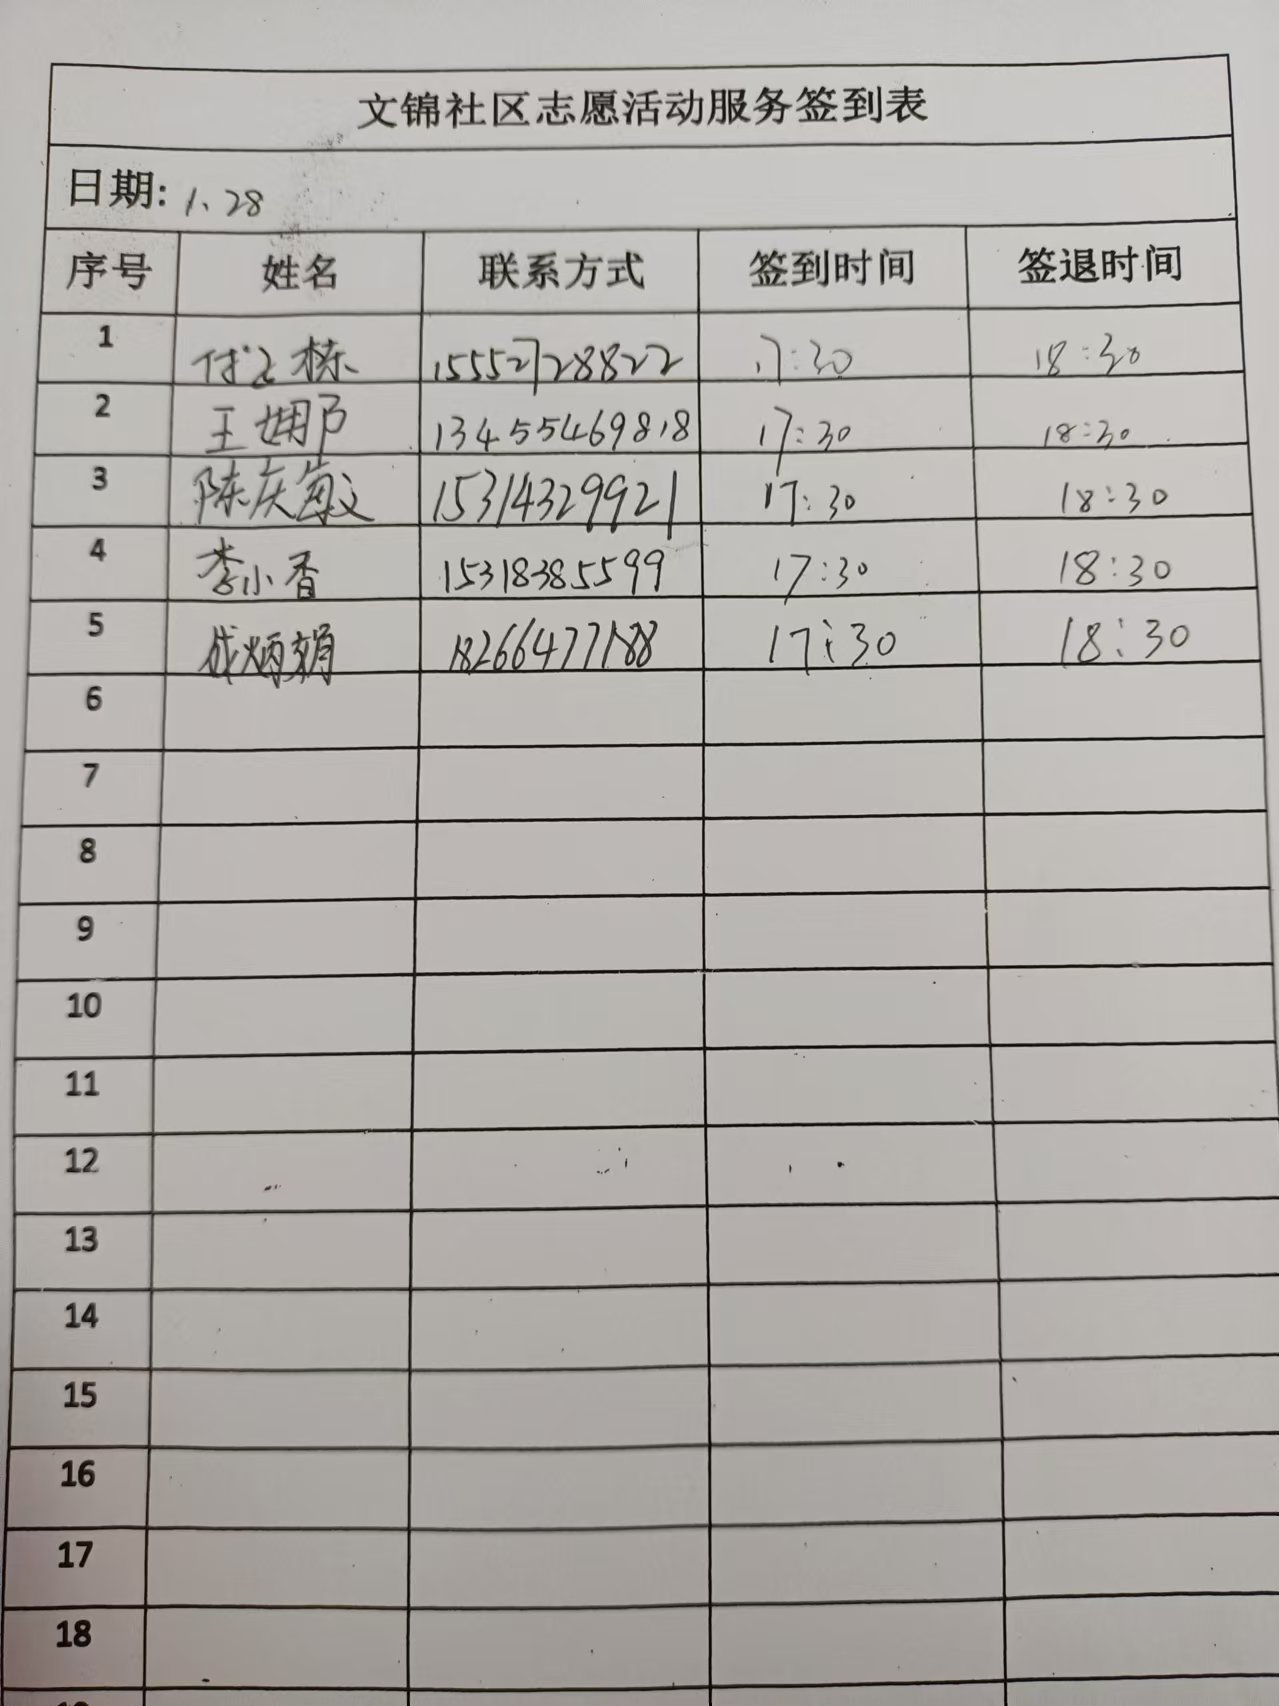 文锦社区志愿活动服务签到表
日期: 1、28
序号 姓名 联系方式 签到时间 签退时间
1 付文栋 15552728822 17:30 18:30
2 王娜 13455469818 17:30 18:30
3 陈庆敏 15314329921 17:30 18:30
4 李小香 15318385599 17:30 18:30
5 18266477188 17:30 18:30
6
7
8
9
10
11
12
13
14
15
16
17
18